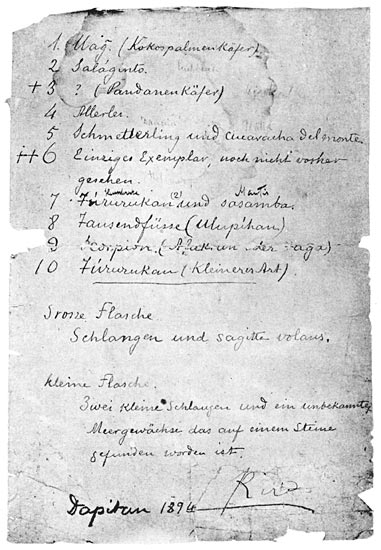 1. Uáñ. (Kokospalmenkäfer).
2 Salágínto.
+ 3 ? (Pandanenkäfer)
4 Allerlei.
5 Schmetterling und cucaracha del monte
++ 6 Einziges Exemplar, noch nicht vorher
gesehen.
7 Túrurukan (2) und sasamba. Mantis
8 Tausendfüsse (Ulupihan)
9 Scorpion. (der
10 Túrurukan (kleinere Art)
Grosse Flasche
Schlangen und sagitta volans.
Kleine Flasche.
Zwei kleine Schlangen und ein unbekanntes
Meergewächse das auf einem Steine
gefunden worden ist.
Rizal
Dapitan 1894